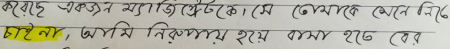 করেছে একজন ম্যাজিস্ট্রেটকে। সে তোমাকে মেনে নিতে
চাইছে না, আমি নিরুপায় হয়ে বাধ্য হতে